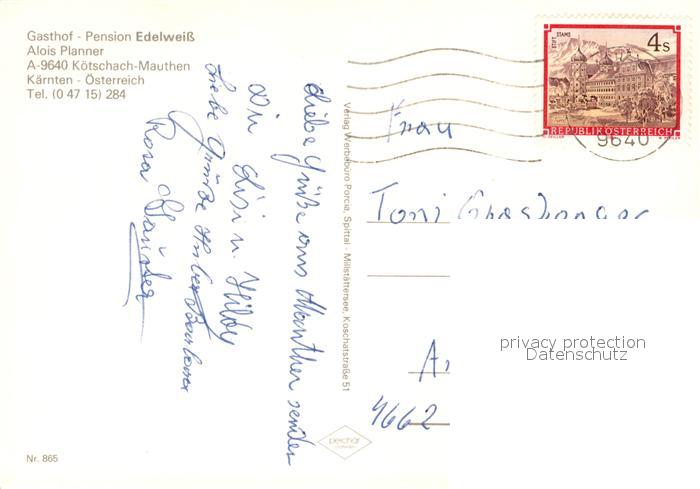 Gasthof - Pension Edelweiß
Alois Planner
A-9640 Kötschach-Mauthen
Kärnten - Österreich
Tel. (0 47 15) 284
Liebe Grüße aus Mauthen senden
Lisi u. Hildy
Liebe Grüße
Rosa
Verlag Werbebüro Porcia, Spittal - Millstättersee, Koschatstraße 51
STIFT STAMS
4 S
REPUBLIK ÖSTERREICH
9640
Frau
Toni
A,
4662
privacy protection
Datenschutz
perchar
Nr. 865